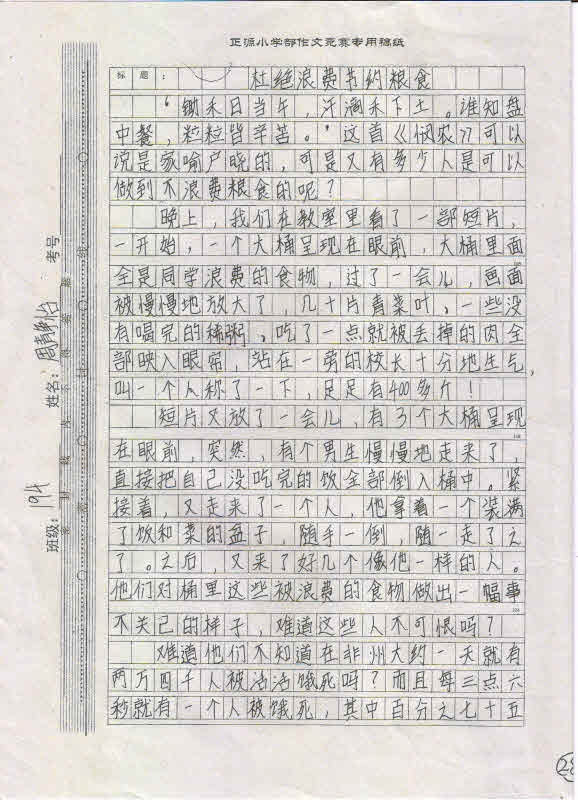 正源小学部作文竞赛专用稿纸
标题：杜绝浪费节约粮食
“锄禾日当午，汗滴禾下土。谁知盘
中餐，粒粒皆辛苦。”这首《悯农》可以
说是家喻户晓的，可是又有多少人是可以
做到不浪费粮食的呢？
晚上，我们在教室里看了一部短片，
一开始，一个大桶呈现在眼前，大桶里面
全是同学浪费的食物，过了一会儿，画面
被慢慢地放大了，几十片青菜叶、一些没
有喝完的稀粥、吃了一点就被丢掉的肉全
部映入眼帘，站在一旁的校长十分地生气，
叫一个人称了一下，足足有400多斤！
短片又放了一会儿，有3个大桶呈现
在眼前，突然，有个男生慢慢地走来了，
直接把自己没吃完的饭全部倒入桶中。紧
接着，又走来了一个人，他拿着一个装满
了饭和菜的盆子，随手一倒，随一走了之
了。之后，又来了好几个像他一样的人。
他们对桶里这些被浪费的食物做出一幅事
不关己的样子，难道这些人不可恨吗？
难道他们不知道在非州大约一天就有
两万四千人被活活饿死吗？而且每三点六
秒就有一个人被饿死，其中百分之七十五
班级：194
姓名：周
考号